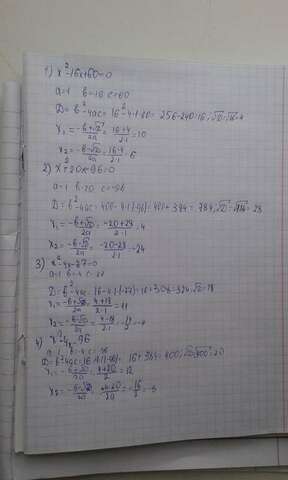 1) x²-16x+60=0
a=1 b=16 c=60
D=b²-4ac=16²-4·1·60=256-240=16, √D=√16=4
x₁=(-b+√D)/2a=(16+4)/2·1=10
x₂=(-b-√D)/2a=(16-4)/2·1=6
2) x²+20x-96=0
a=1 b=20 c=-96
D=b²-4ac=400-4·1·(-96)=400+384=784, √D=√784=28
x₁=(-b+√D)/2a=(-20+28)/2·1=4
x₂=(-b-√D)/2a=(-20-28)/2·1=-24
3) x²-4x-77=0
a=1 b=4 c=-77
D=b²-4ac=16-4·1·(-77)=16+308=324, √D=18
x₁=(-b+√D)/2a=(4+18)/2·1=11
x₂=(-b-√D)/2a=(4-18)/2·1=-14/2=-7
4) x²-4x-96
a=1 b=-4 c=-96
D=b²-4ac=16-4·1·(-96)=16+384=400, √D=√400=20
x₁=(-b+√D)/2a=(4+20)/2=12
x₂=(-b-√D)/2a=(4-20)/2a=-16/2=-8